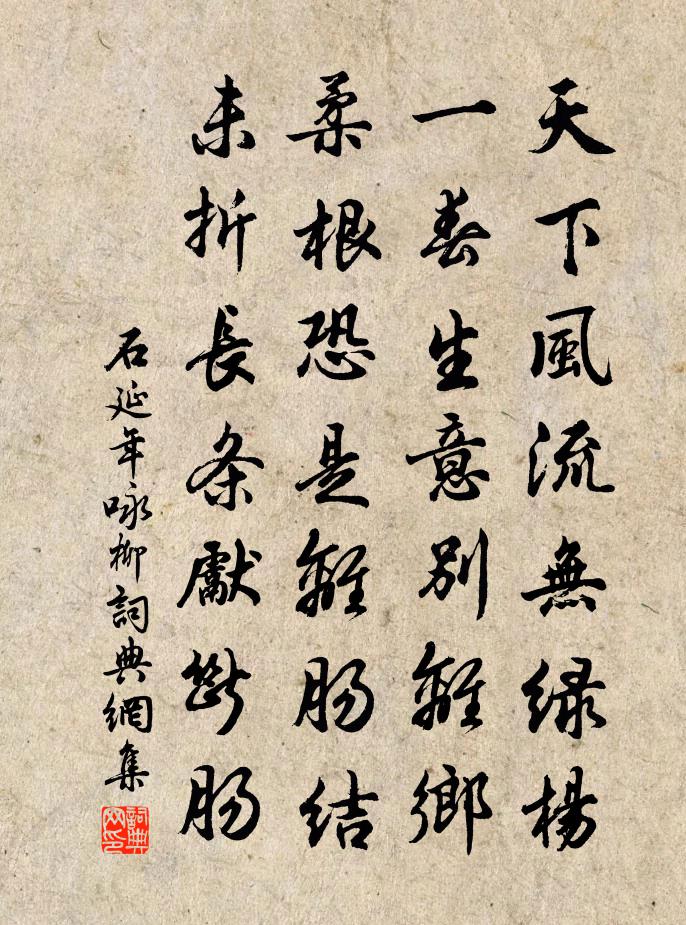 天下風流無緑楊
一春生意別離鄉
柔根恐是離腸結
未折長条獻斷腸
石延年咏柳詞典網集
詞典网印